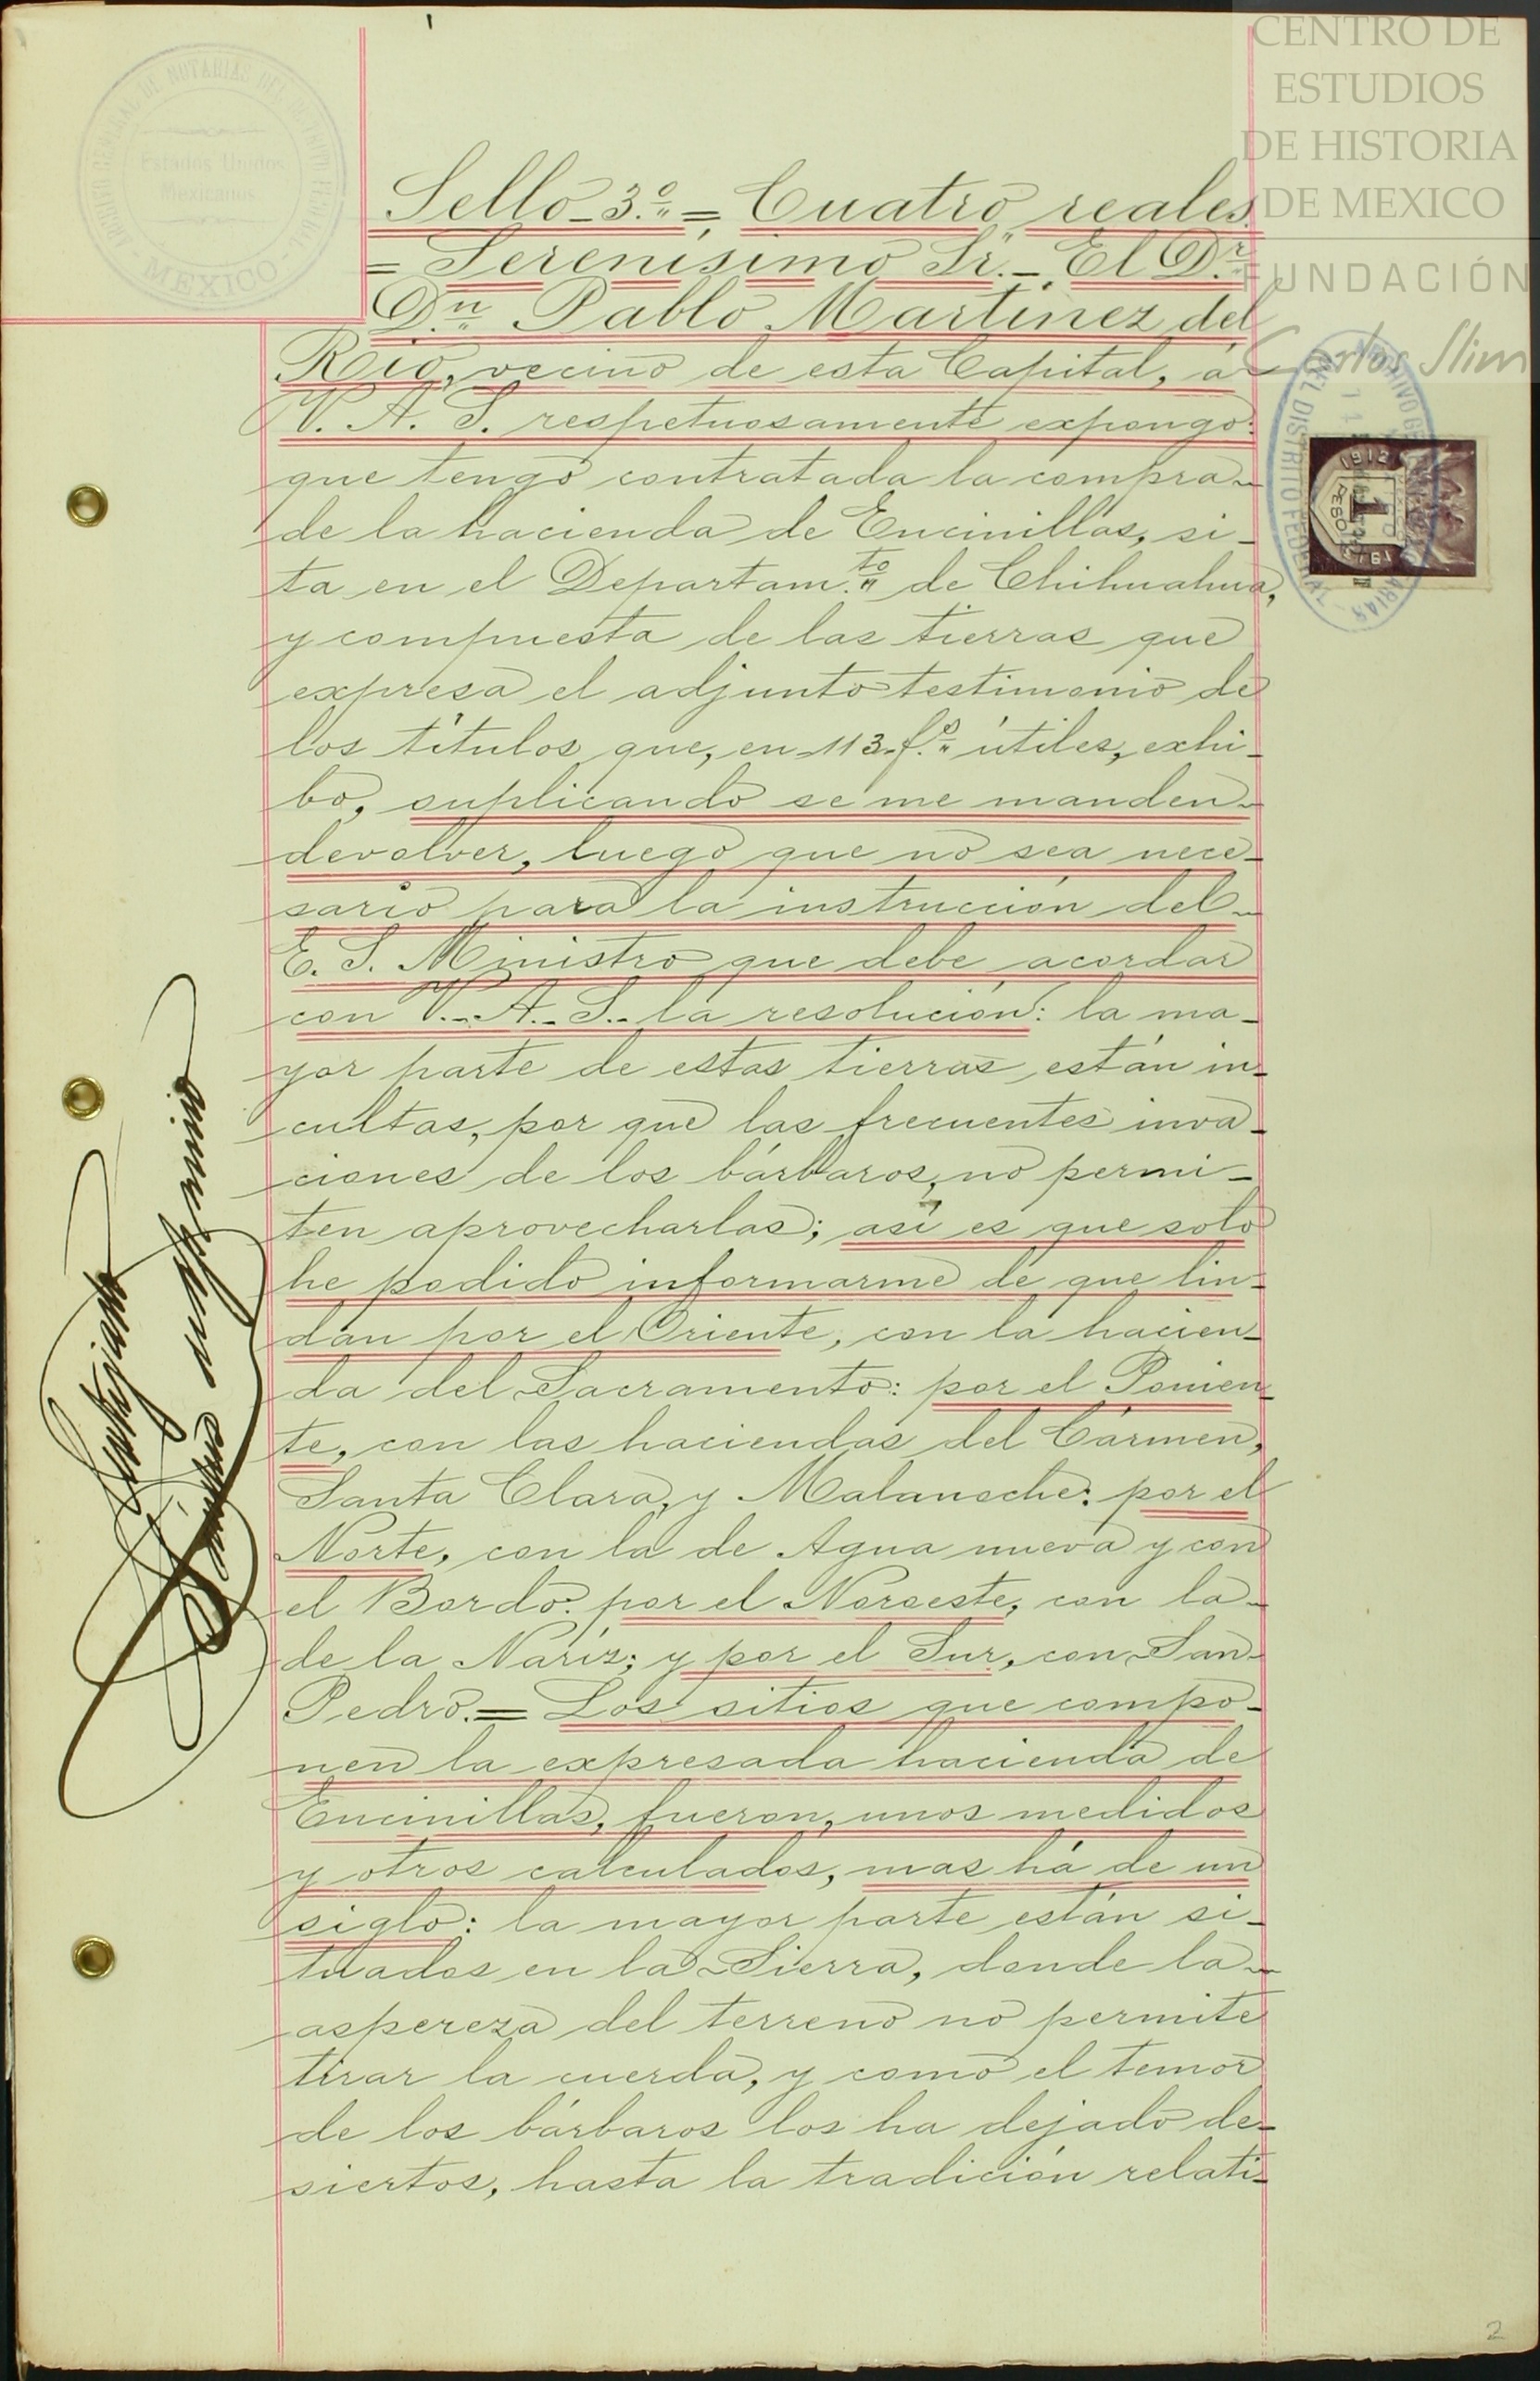 CENTRO DE
ESTUDIOS
DE HISTORIA
DE MEXICO
FUNDACIÓN
Carlos Slim
Estados Unidos
Mexicanos
MEXICO
Sello 3.º = Cuatro reales
= Serenísimo Sr. - El D.r
D.n Pablo Martinez del
Rio, vecino de esta Capital, á
V. A. S. respetuosamente expongo:
que tengo contratada la compra
de la hacienda de Encinillas, si-
ta en el Departam.to de Chihuahua,
y compuesta de las tierras que
expresa el adjunto testimonio de
los títulos que, en 113 f.s útiles, exhi-
bo, suplicando se me manden
devolver, luego que no sea nece-
sario para la instrucción del
E. S. Ministro que debe acordar
con V. A. S. la resolución: la ma-
yor parte de estas tierras, están in-
cultas, por que las frecuentes inva-
ciones de los bárbaros, no permi-
ten aprovecharlas; así es que solo
he podido informarme de que lin-
dan por el Oriente, con la hacien-
da del Sacramento: por el Ponien-
te, con las haciendas del Cármen,
Santa Clara, y Malanoche: por el
Norte, con la de Agua nueva y con
el Bordo: por el Noroeste, con la
de la Naríz; y por el Sur, con San
Pedro. = Los sitios que compo-
nen la expresada hacienda de
Encinillas, fueron, unos medidos
y otros calculados, mas há de un
siglo: la mayor parte están si-
tuados en la Sierra, donde la
aspereza del terreno no permite
tirar la cuerda, y como el temor
de los bárbaros los ha dejado de-
siertos, hasta la tradición relati-
1912
1
PESO
1913
DEL DISTRITO FEDERAL
2